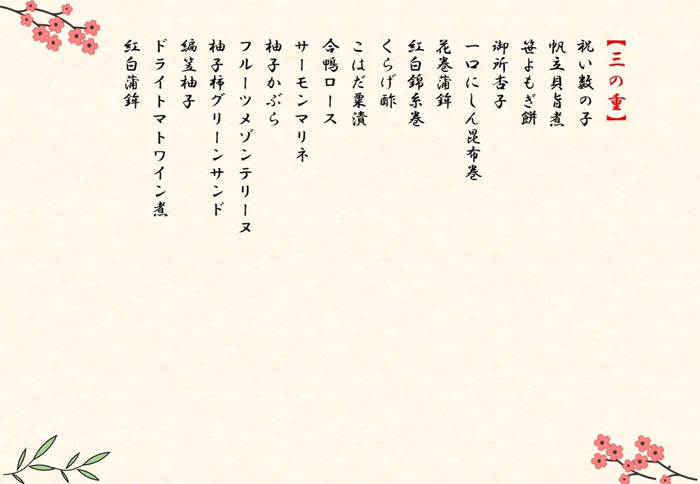 【三の重】
祝い数の子
帆立貝旨煮
笹よもぎ餅
御所杏子
一口にしん昆布巻
花巻蒲鉾
紅白錦糸巻
くらげ酢
こはだ粟漬
合鴨ロース
サーモンマリネ
柚子かぶら
フルーツメゾンテリーヌ
柚子柿グリーンサンド
編笠柚子
ドライトマトワイン煮
紅白蒲鉾